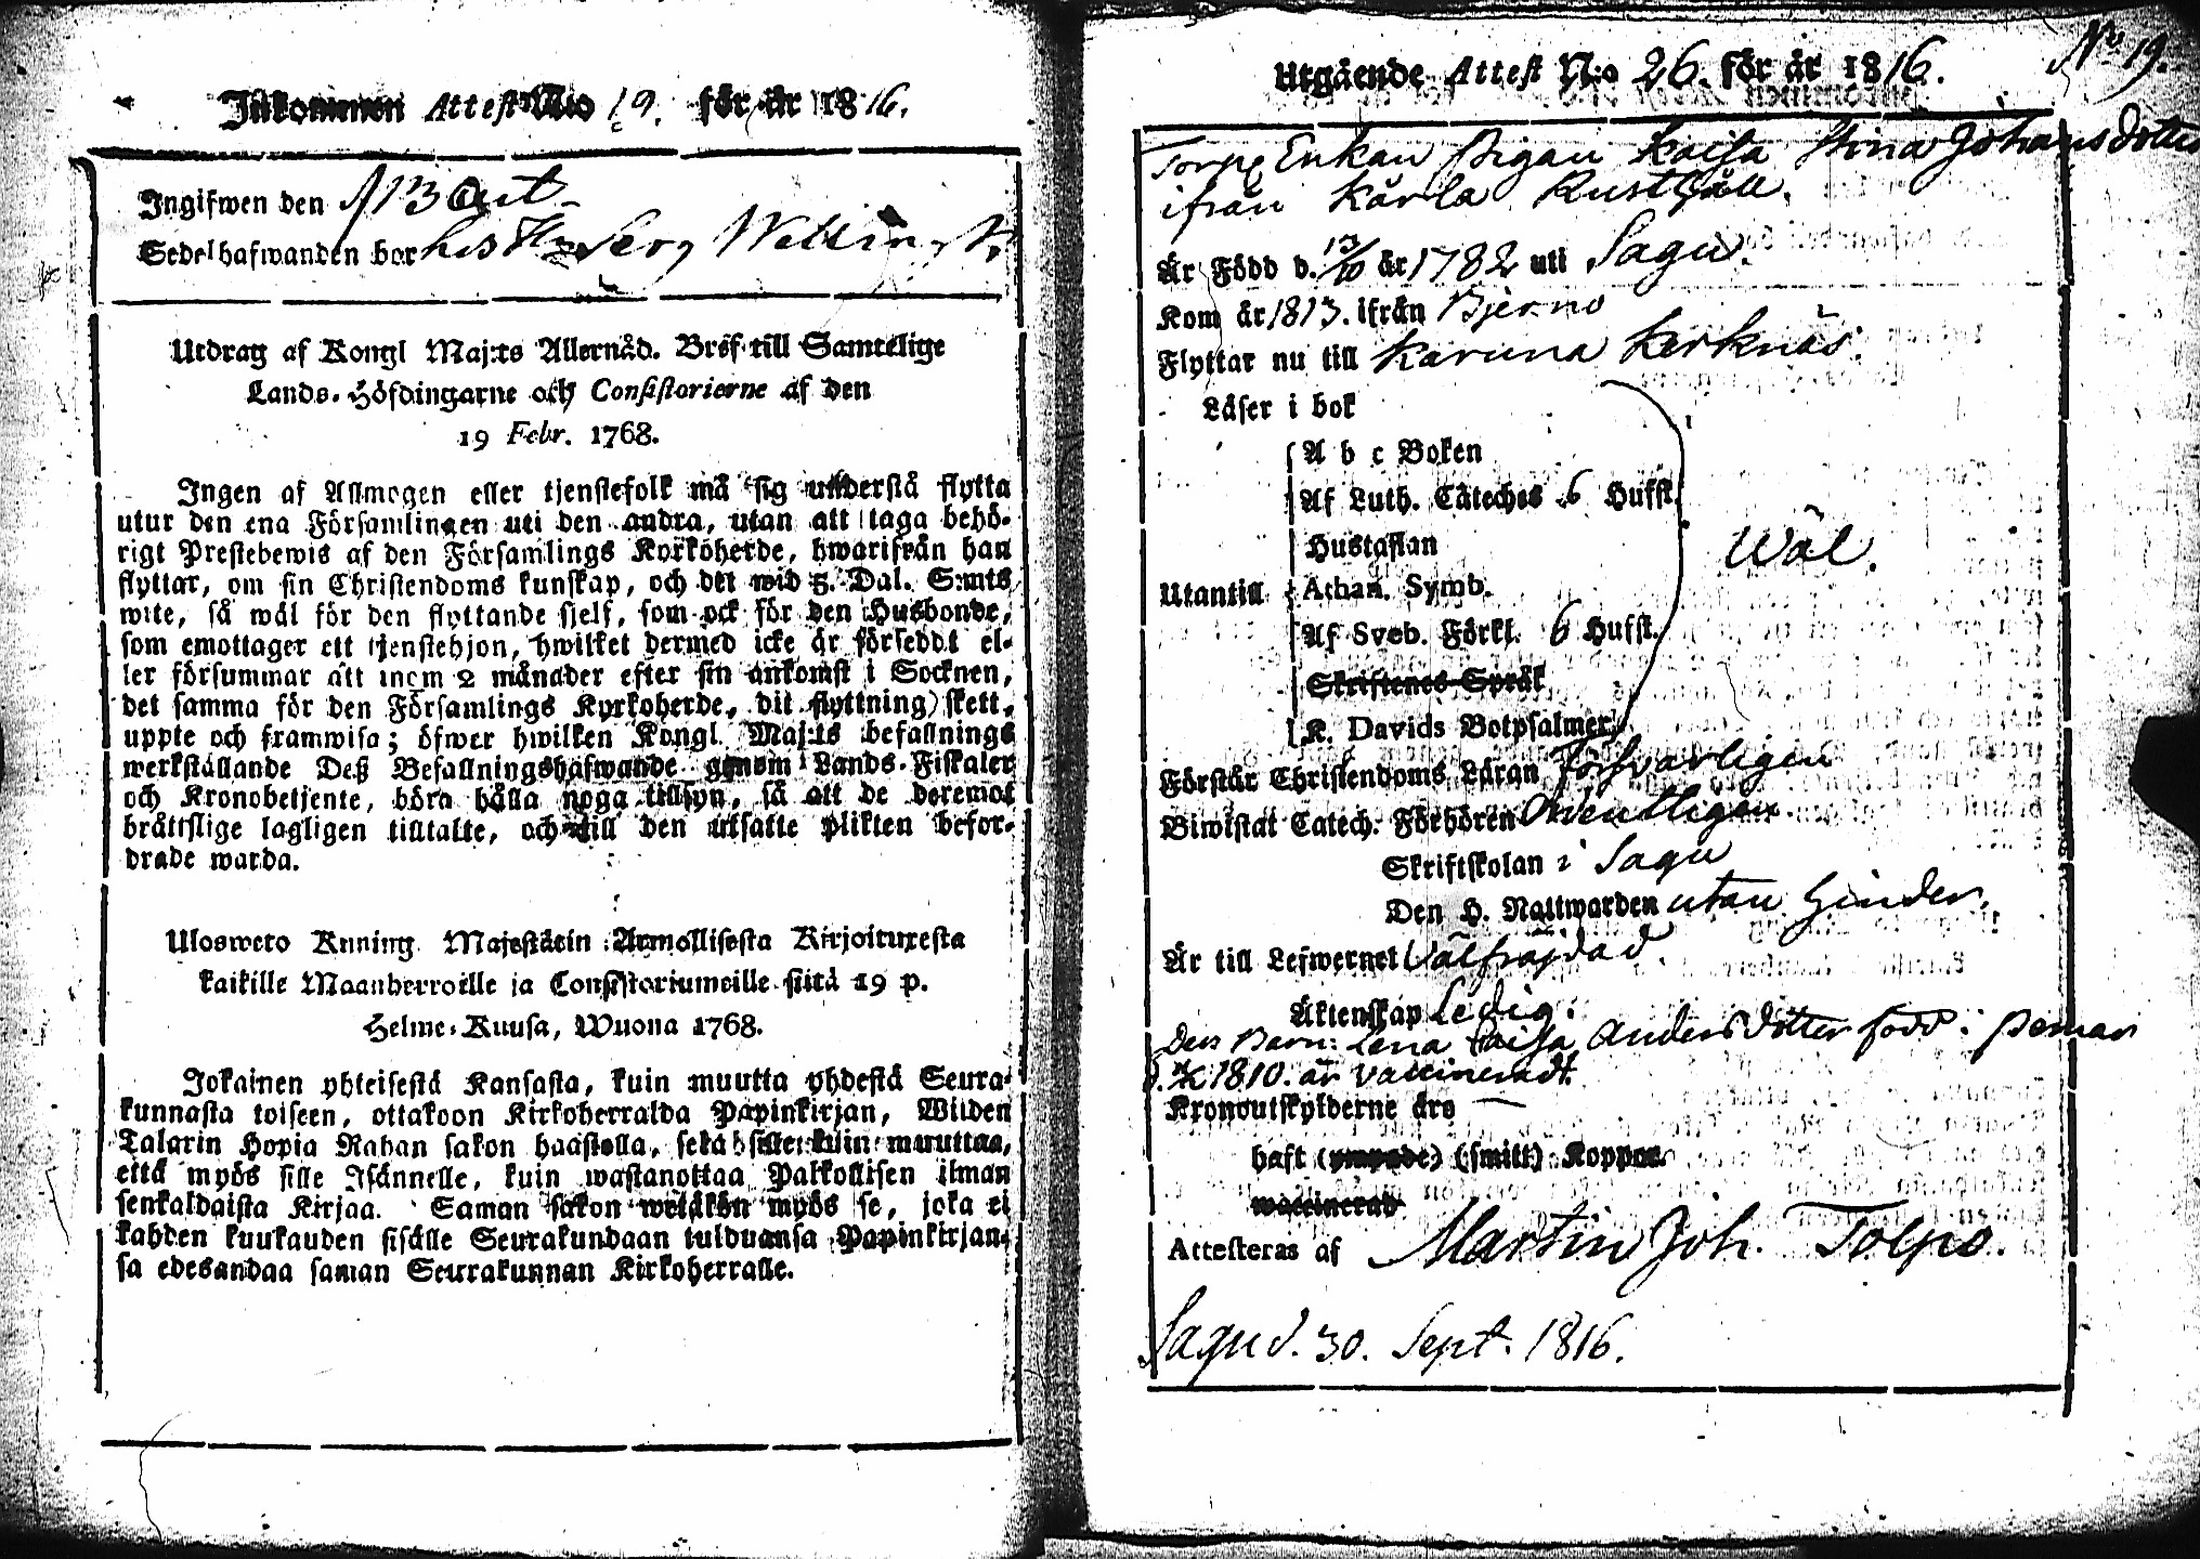 Inkommen Attest N:o 19. för år 1816.
Ingifwen den 13 Oct.
Sedelhafwanden bor hos Serg Wellin
Utdrag af Kongl Maj:ts Allernåd. Bref till Samtelige
Lands-Höfdingarne och Consistorierne af den
19 Febr. 1768.
Ingen af Allmogen eller tjenstefolk må sig understå flytta
utur den ena Församlingen uti den andra, utan att taga behö-
rigt Prestebewis af den Församlings Kyrkoherde, hwarifrån han
flyttar, om sin Christendoms kunskap, och det wid 5. Dal. S:mts
wite, så wäl för den flyttande sjelf, som ock för den Husbonde,
som emottager ett tjenstehjon, hwilket dermed icke är förseddt el-
ler försummar att inom 2 månader efter sin ankomst i Socknen,
det samma för den Församlings Kyrkoherde, dit flyttning skett,
uppte och framwisa; öfwer hwilken Kongl Maj:ts befallnings
werkställande Deß Befallningshafwande genom Lands-Fiskaler
och Kronobetjente, böra hålla noga tillsyn, så att de deremot
bråttslige lagligen tilltalte, och till den utsatte plikten befor-
drade warda.
Ulosweto Kuning. Majestätin Armollisesta Kirjoituxesta
kaikille Maanherroille ja Consistoriumeille siitä 19 p.
Helme-Kuusa, Wuona 1768.
Jokainen yhteisestä Kansasta, kuin muutta yhdestä Seura-
kunnasta toiseen, ottakoon Kirkoherralda Papinkirjan, Wiiden
Talarin Hopia Rahan sakon haastolla, sekä sille kuin muuttaa,
että myös sille Isännelle, kuin wastanottaa Palkollisen ilman
senkaldaista Kirjaa. Saman sakon wetäkön myös se, joka ei
kahden kuukauden sisälle Seurakundaan tulduansa Papinkirjan-
sa edesandaa saman Seurakunnan Kirkoherralle.
No 19.
Utgående Attest N:o 26. för år 1816.
Torp. Enkan Pigan Kaisa Stina Johansdotter
ifrån Kärla Rusthåll.
Är Född d. 13/10 år 1782 uti Sagu.
Kom år 1813. ifrån Bjerno
Flyttar nu till Karuna Kerknäs.
Läser i bok
A b c Boken
Af Luth. Cateches 6 Hufst.
Hustaflan
Wäl.
Utantill Athan. Symb.
Af Sveb. Förkl. 6 Hufst.
Skriftenes Språk
K. Davids Botpsalmer
Förstår Christendoms Läran försvarligen
Biwistat Catech. Förhören Ordentligen
Skriftskolan i Sagu
Den H. Nattwarden utan hinder.
Är till Lefwernet Välfräjdad.
Äktenskap Ledig.
Dess Barn: Lena Caisa Andersdotter född i Pemar
1810. är vaccineradt.
Kronoutskylderne äro —
haft (ympade) (smitt) Koppor.
waccinerad
Attesteras af Martin Joh. Tolpo.
Sagu d. 30. Sept. 1816.